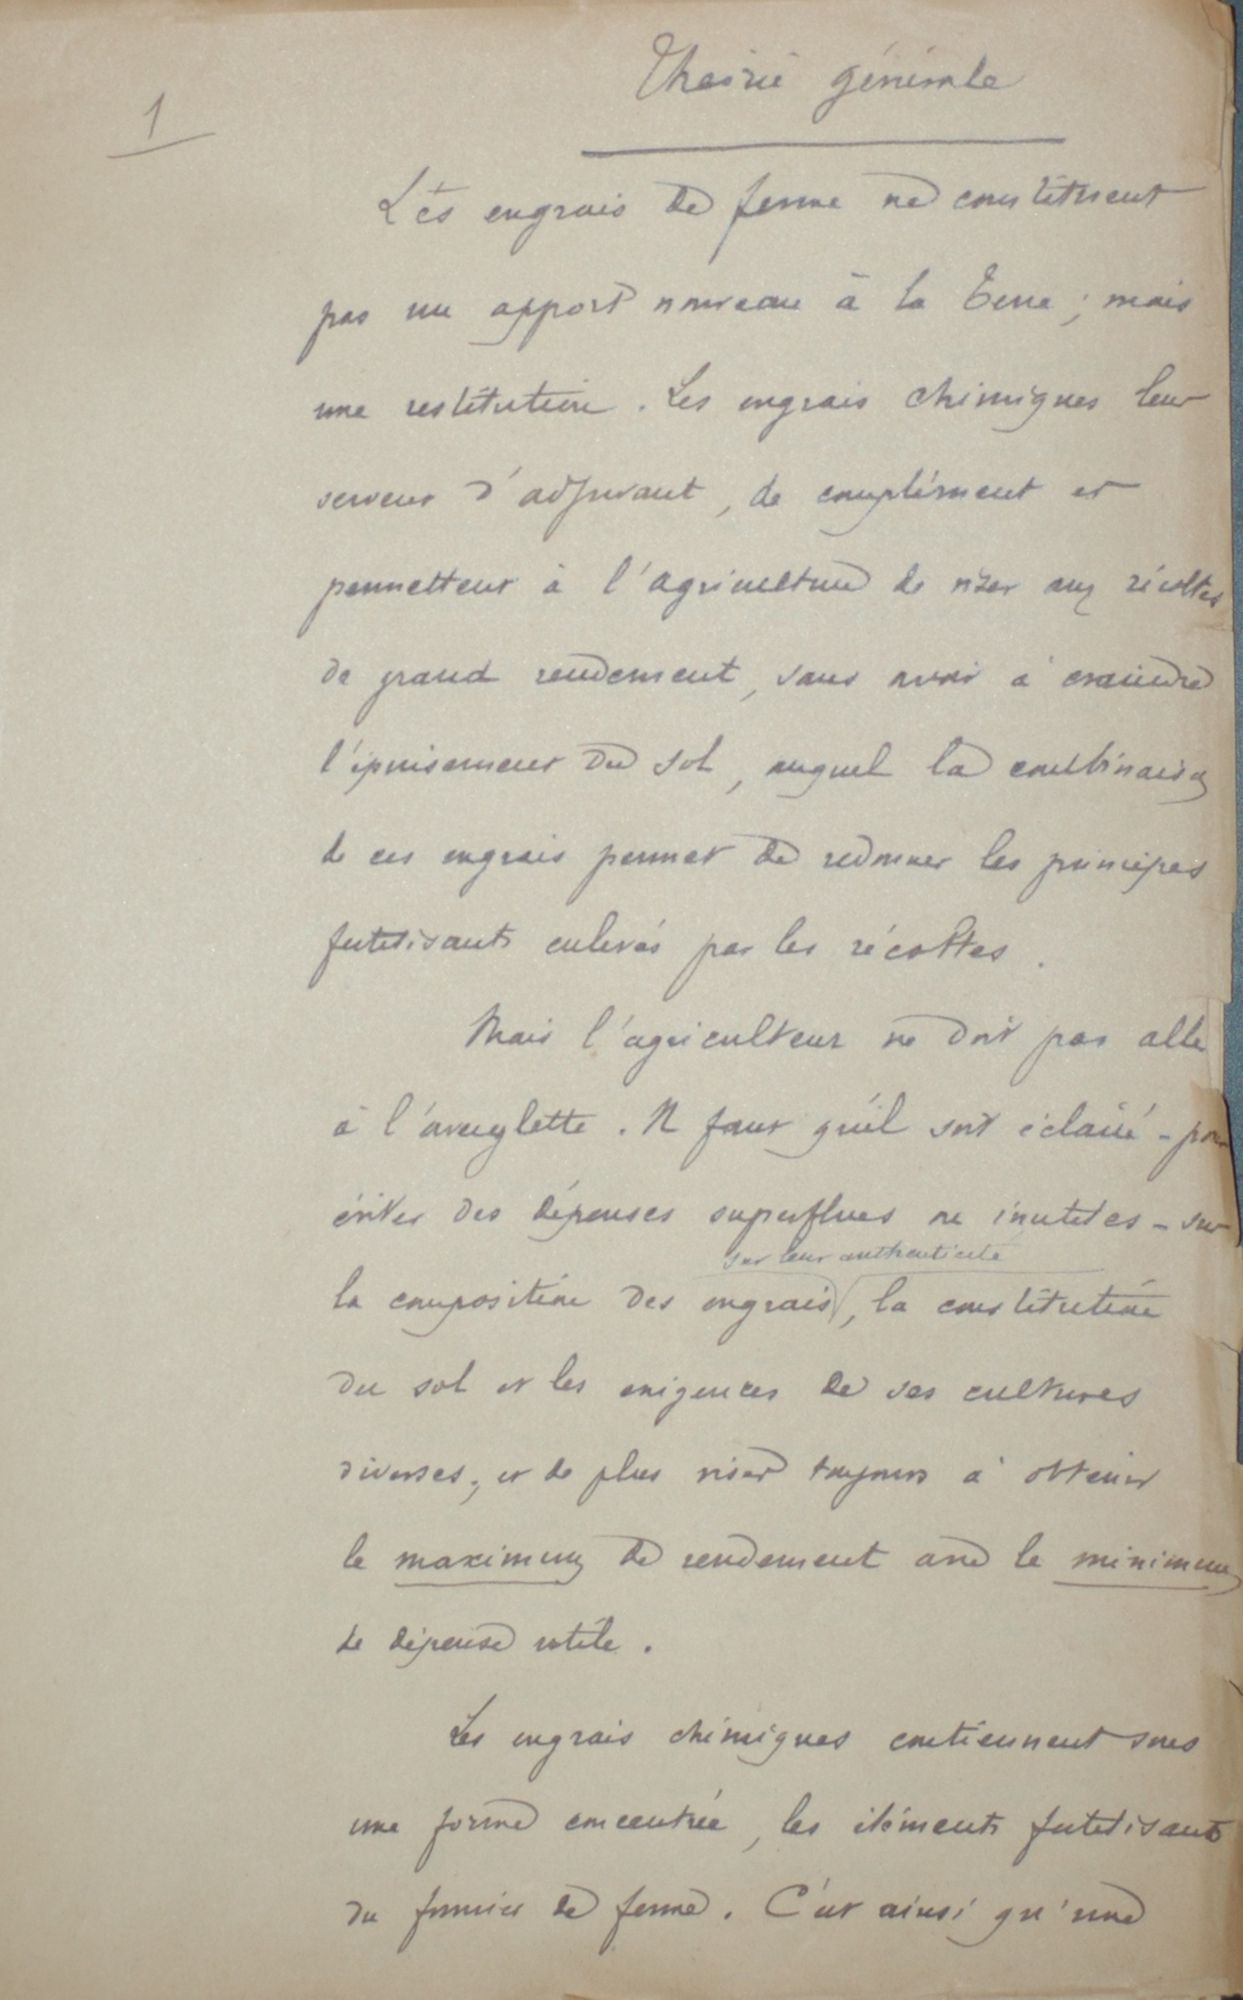 Théorie générale
1
Les engrais de ferme ne constituent
pas un apport nouveau à la terre ; mais
une restitution. Les engrais chimiques leur
servent d'adjuvant, de complément et
permettent à l'agriculteur de viser aux récoltes
de grand rendement, sans avoir à craindre
l'épuisement du sol, auquel la combinaison
de ces engrais permet de redonner les principes
fertilisants enlevés par les récoltes.
Mais l'agriculteur ne doit pas aller
à l'aveuglette. Il faut qu'il soit éclairé - pour
éviter des dépenses superflues ou inutiles - sur
sur leur authenticité
la composition des engrais, la constitution
du sol et les exigences de ses cultures
diverses ; et de plus viser toujours à obtenir
le maximum de rendement avec le minimum
de dépense utile.
Les engrais chimiques contiennent sous
une forme concentrée, les éléments fertilisants
du fumier de ferme. C'est ainsi qu'une